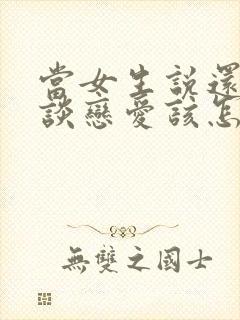 當女生說還
談戀愛該怎
無雙之國士